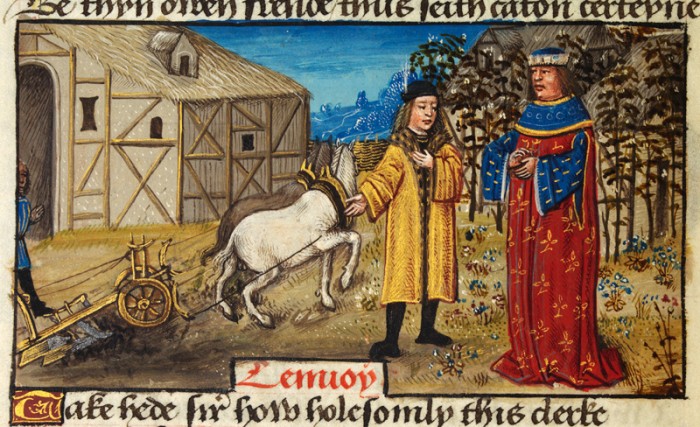 Be thyn owen frende thus seith caton certeyne
Lenuoy
Take hede sir how holsomly this clerke